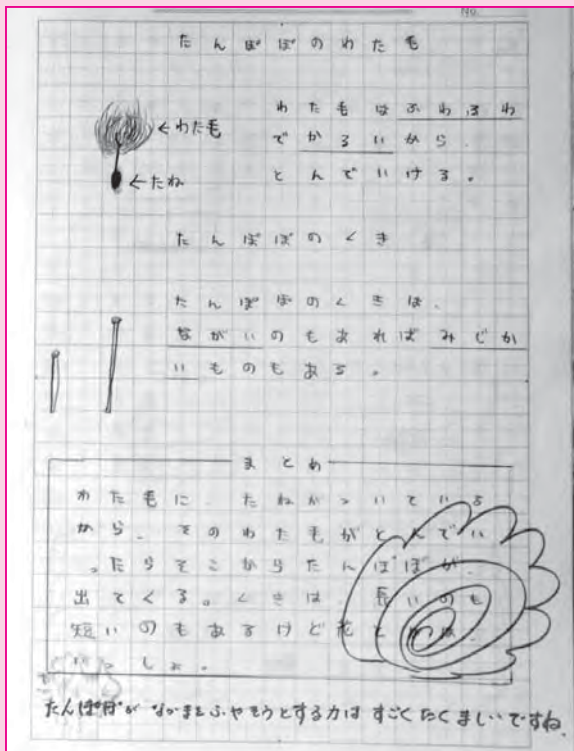 No.
たんぽぽのわた毛
わた毛はふわふわ
でかるいから、
とんでいける。
←わた毛
←たね
たんぽぽのくき
たんぽぽのくきは、
ながいのもあれば みじか
いものもある。
まとめ
わた毛に、たねがついている
から、そのわた毛がとんでい
ったらそこからたんぽぽが、
出てくる。くきは、長いのも
短いのもあるけど花とかは、
いっしょ。
たんぽぽが なかまをふやそうとする力は すごくたくましいですね。